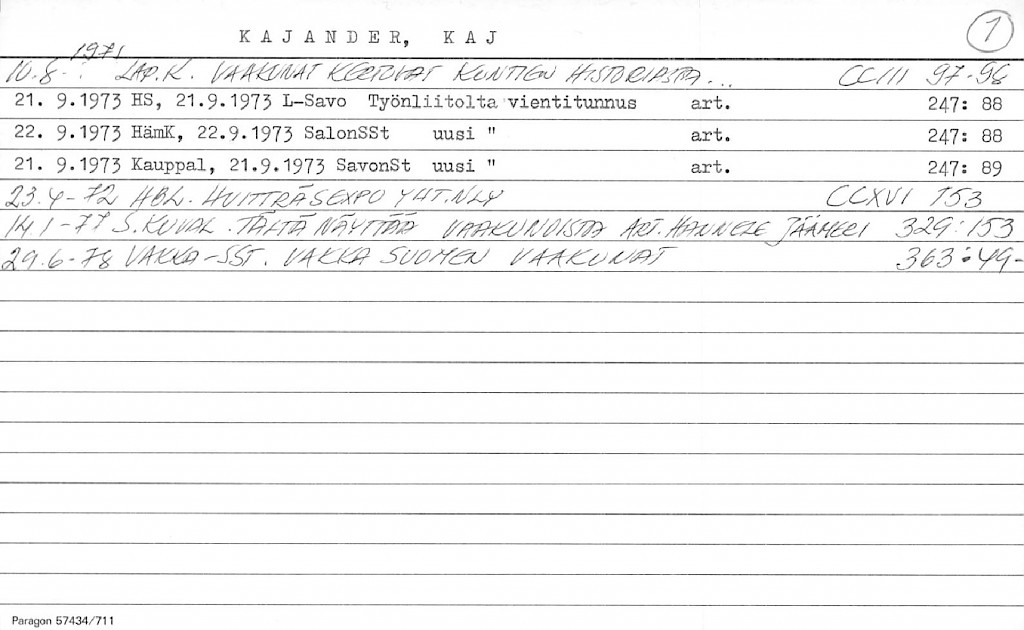 KAJANDER, KAJ 1
1971
10.8-. LAP.K. VAAKUNAT KERTOVAT KUNTIEN HISTORIASTA... CCIII 97-98
21. 9.1973 HS, 21.9.1973 L-Savo Työnliitolta vientitunnus art. 247: 88
22. 9.1973 HämK, 22.9.1973 SalonSSt uusi " art. 247: 88
21. 9.1973 Kauppal, 21.9.1973 SavonSt uusi " art. 247: 89
23.4-72 HBL. HVITTRÄSEXPO YHT.NLY CCXVI 153
14.1-77 S.KUVAL. TÄLTÄ NÄYTTÄÄ VAAKUNOISTA ART. HANNELE JÄÄMERI 329:153
29.6-78 VAKKA-SST. VAKKA SUOMEN VAAKUNAT 363:49-
Paragon 57434/711